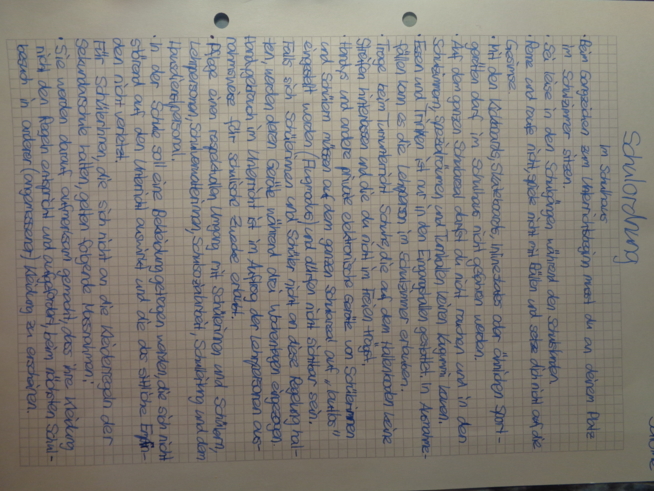 Schulordnung
im Schulhaus
• Beim Gongzeichen zum Unterrichtsbeginn musst du an deinem Platz
im Schulzimmer sitzen.
• Sei leise in den Schulgängen während den Schulstunden.
• Renne und raufe nicht, spiele nicht mit Bällen und setze dich nicht auf die
Gesimse.
• Mit den Kickboards, Skateboards, Inlineskates oder ähnlichen Sport-
geräten darf im Schulhaus nicht gefahren werden.
• Auf dem ganzen Schulareal darfst du nicht rauchen und in den
Schulzimmern, Spezialräumen und Turnhallen keinen Kaugummi kauen.
• Essen und Trinken ist nur in den Eingangshallen gestattet. In Ausnahme-
fällen kann es die Lehrperson im Schulzimmer erlauben.
• Trage beim Turnunterricht Schuhe, die auf dem Hallenboden keine
Streifen hinterlassen und die du nicht im Freien trägst.
• Handys und andere private elektronische Geräte von Schülerinnen
und Schülern müssen auf dem ganzen Schulareal auf "lautlos"
eingestellt werden (Flugmodus) und dürfen nicht sichtbar sein.
Falls sich Schülerinnen und Schüler nicht an diese Regelung hal-
ten, werden deren Geräte während drei Wochentagen eingezogen.
Handygebrauch im Unterricht ist im Auftrag der Lehrpersonen aus-
nahmsweise für schulische Zwecke erlaubt.
• Pflege einen respektvollen Umgang mit Schülerinnen und Schülern,
Lehrpersonen, Schulsozialarbeit, Schulleitung und dem
Hausdienstpersonal.
• In der Schule soll eine Bekleidung getragen werden, die sich nicht
störend auf den Unterricht auswirkt und die das sittliche Empfin-
den nicht verletzt.
Für Schülerinnen, die sich nicht an die Kleiderregeln der
Sekundarschule halten, gelten folgende Massnahmen:
• Sie werden darauf aufmerksam gemacht, dass ihre Kleidung
nicht den Regeln entspricht und aufgefordert, beim nächsten Schul-
besuch in anderer (angemessener) Kleidung zu erscheinen.